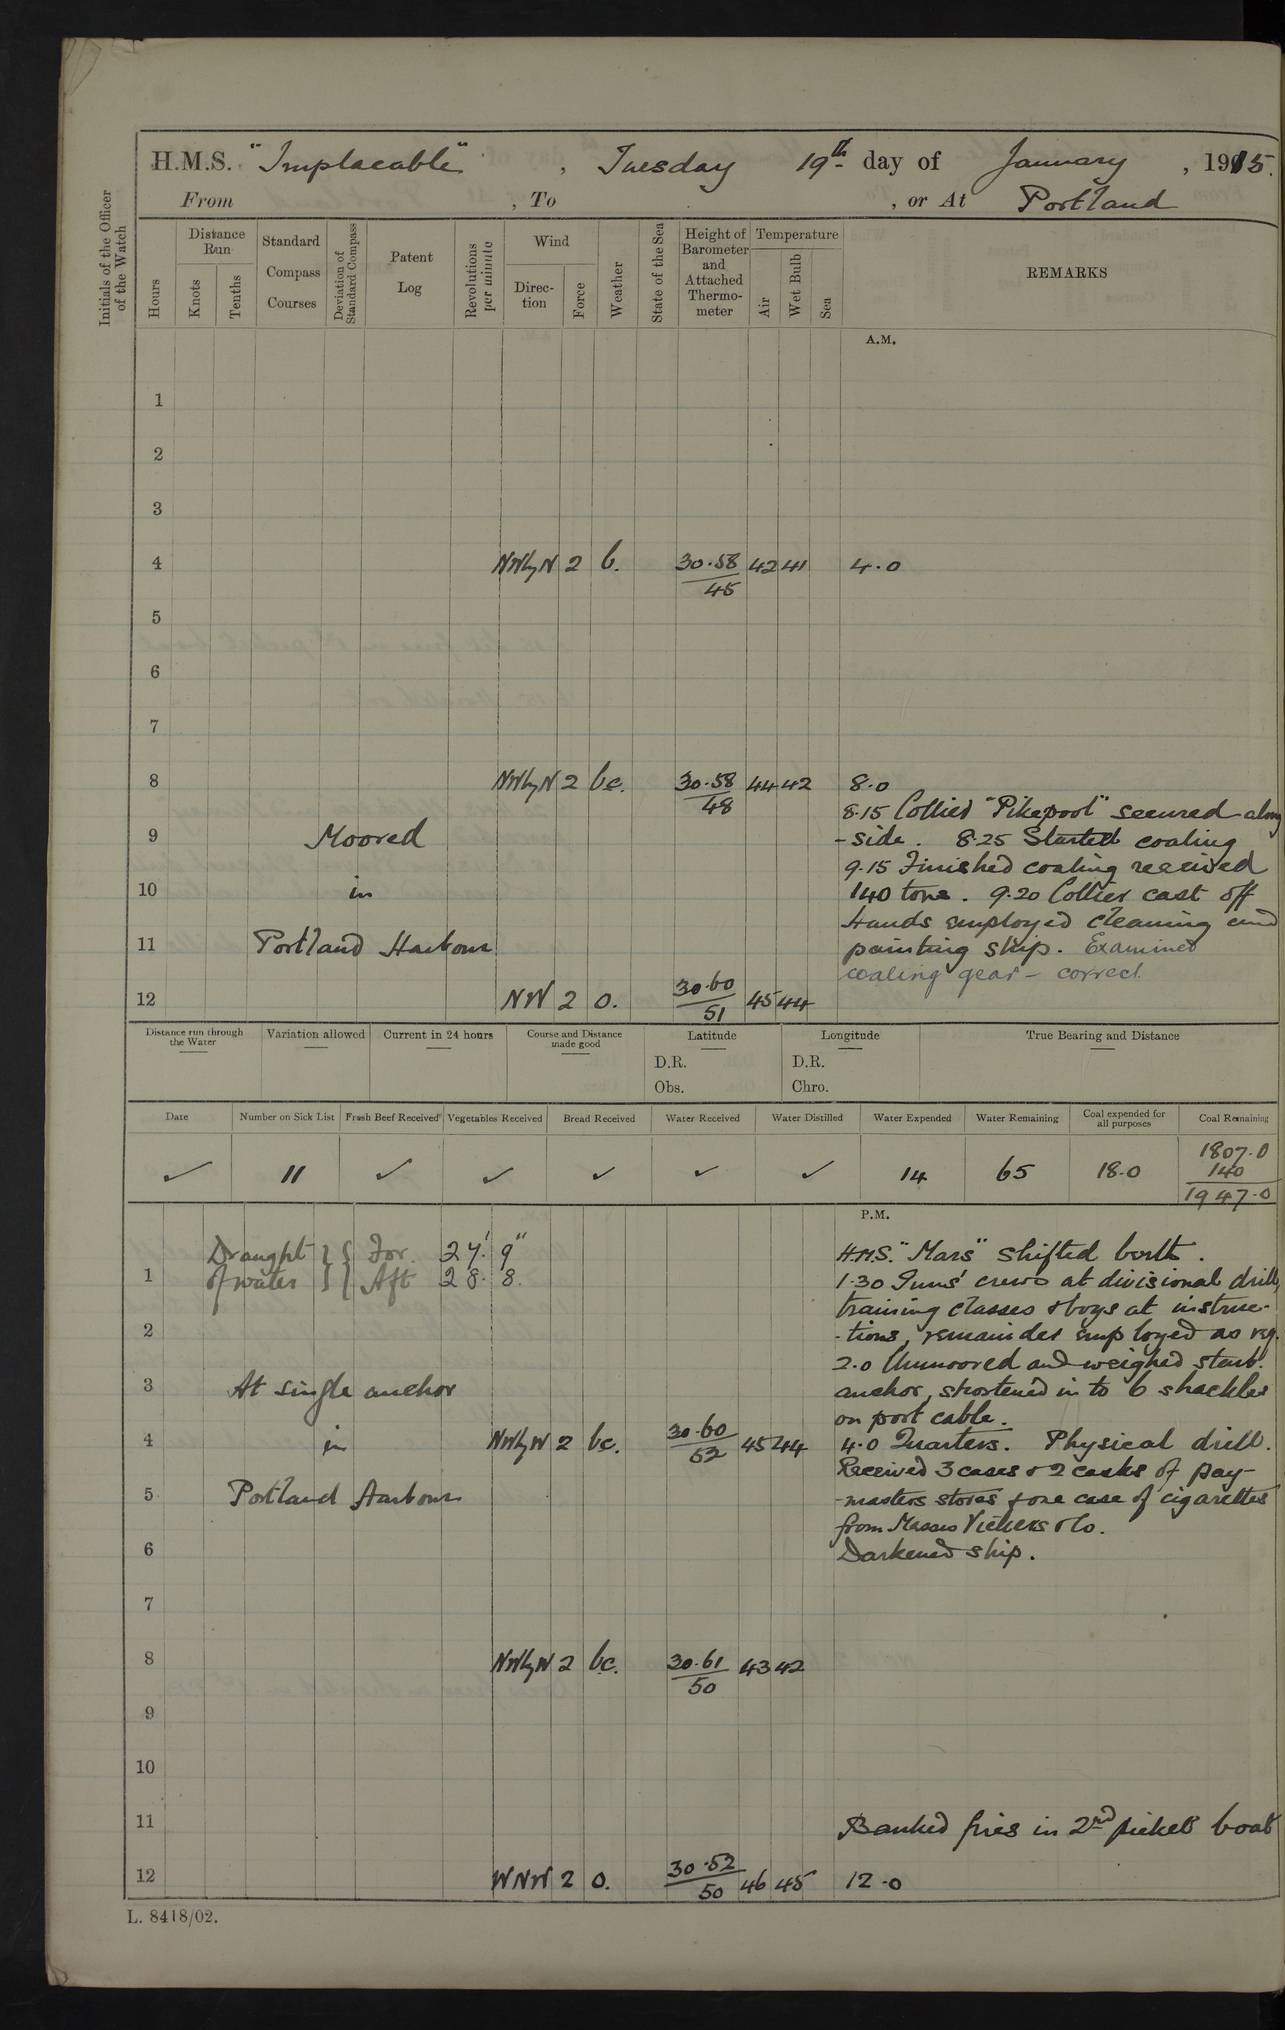 H.M.S. "Implacable", Tuesday 19th day of January, 1915.
From , To , or At Portland
Initials of the Officer of the Watch
Hours
Distance Run
Knots
Tenths
Standard Compass Courses
Deviation of Standard Compass
Patent Log
Revolutions per minute
Wind
Direc-tion
Force
Weather
State of the Sea
Height of Barometer and Attached Thermo-meter
Temperature
Air
Wet Bulb
Sea
REMARKS
A.M.
1
2
3
4 NWbyN 2 b. 30.58/45 42 41 4.0
5
6
7
8 NWbyN 2 bc. 30.58/48 44 42 8.0
8.15 Collier "Pikepool" secured along
9 Moored -side. 8.25 Started coaling
9.15 Finished coaling received
10 in 140 tons. 9.20 Collier cast off
Hands employed cleaning and
11 Portland Harbour painting ship. Examined
coaling gear - correct
12 NW 2 o. 30.60/51 45 44
Distance run through the Water
Variation allowed
Current in 24 hours
Course and Distance made good
Latitude
D.R.
Obs.
Longitude
D.R.
Chro.
True Bearing and Distance
Date Number on Sick List Fresh Beef Received Vegetables Received Bread Received Water Received Water Distilled Water Expended Water Remaining Coal expended for all purposes Coal Remaining
✓ 11 ✓ ✓ ✓ ✓ ✓ 14 65 18.0 1807.0
140
1947.0
P.M.
Draught For. 27' 9" H.M.S. "Mars" shifted berth.
1 of water Aft 28. 8. 1.30 Guns' crews at divisional drill,
training classes & boys at instruc-
2 -tions, remainder employed as req.
2.0 Unmoored and weighed starb.
3 At single anchor anchor, shortened in to 6 shackles
on port cable.
4 in NWbyW 2 bc. 30.60/52 45 44 4.0 Quarters. Physical drill.
Received 3 cases & 2 casks of pay-
5 Portland Harbour -masters stores & one case of cigarettes
from Messrs Vickers & Co.
6 Darkened ship.
7
8 NWbyW 2 bc. 30.61/50 43 42
9
10
11 Banked fires in 2nd picket boat
12 WNW 2 o. 30.52/50 46 45 12.0
L. 8418/02.